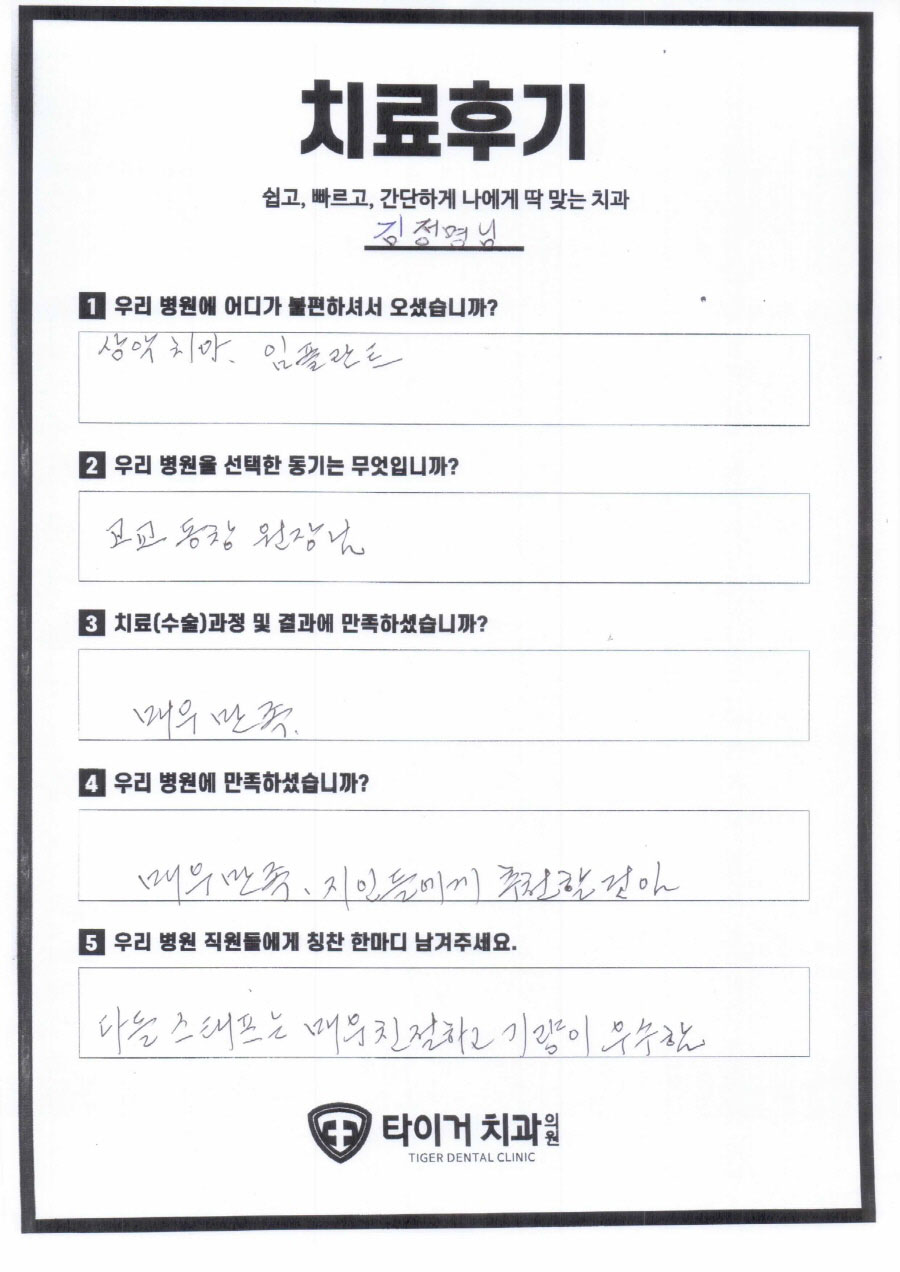 치료후기
쉽고, 빠르고, 간단하게 나에게 딱 맞는 치과
김정명님
1 우리 병원에 어디가 불편하셔서 오셨습니까?
상악 치아. 임플란트
2 우리 병원을 선택한 동기는 무엇입니까?
고교 동창 원장님
3 치료(수술)과정 및 결과에 만족하셨습니까?
매우 만족.
4 우리 병원에 만족하셨습니까?
매우 만족, 지인들에게 추천할 것임
5 우리 병원 직원들에게 칭찬 한마디 남겨주세요.
다들 스태프는 매우 친절하고 기량이 우수함
타이거 치과의원
TIGER DENTAL CLINIC